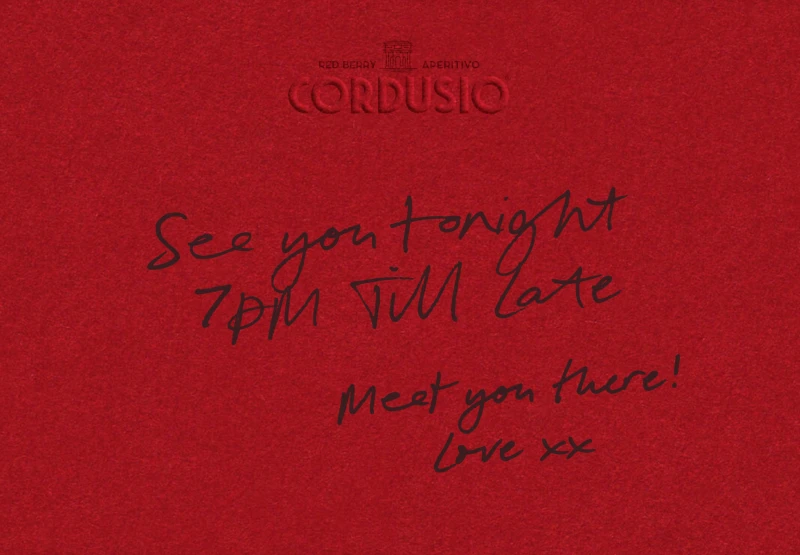 RED BERRY APERITIVO
CORDUSIO
See you tonight
7pm Till Late
Meet you there!
Love xx